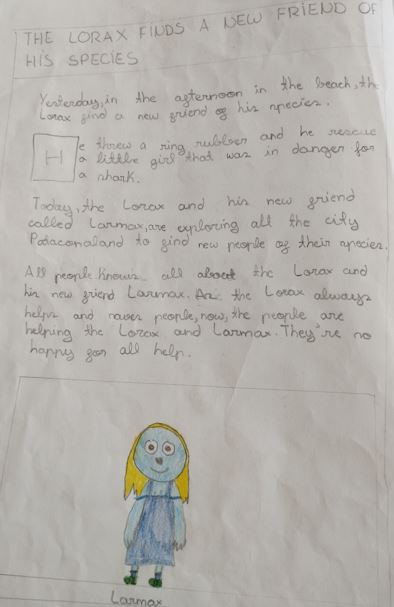 THE LORAX FINDS A NEW FRIEND OF
HIS SPECIES
Yesterday, in the afternoon in the beach, the
Lorax find a new friend of his species.
He threw a ring rubber and he rescue
a little girl that was in danger for
a shark.
Today, the Lorax and his new friend
called Larmax, are exploring all the city
Patacomaland to find new people of their species.
All people knows all about the Lorax and
his new friend Larmax. As the Lorax always
helps and saves people, now, the people are
helping the Lorax and Larmax. They're so
happy for all help.
Larmax